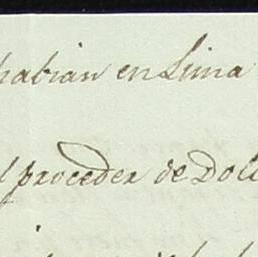 habian en Lima
proceder de Dol